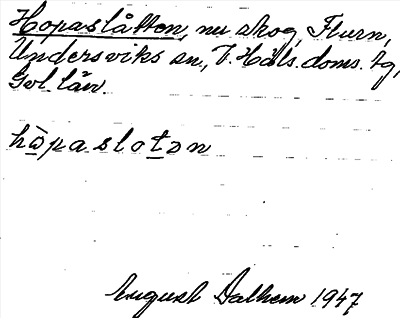 Hopaslåtten, nu skog, Flurn,
Undersviks sn., V. Häls. doms. tg,
Gvl. län.
hòpaslotən
August Dalhem 1947